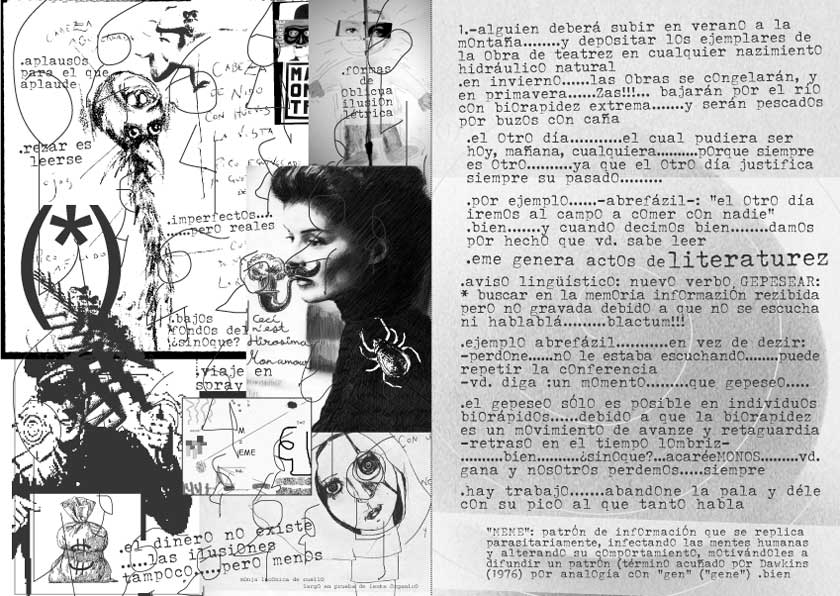 .aplausOs
para el que
aplaude
.rezar es
leerse
CABEZA
DE NIDO
CON HUEVOS
LA VISTA
MA
OM
TR
.fOrmas
de
Oblicua
ilusiÓn
létrica
.imperfectOs....
.....perO reales
(*)
.bajOs
fOndOs del
¿sinOque?
Ceci
n'est
Hirosima
Mon amour
.viaje en
spray
M
=
EME
CON
$
.el dinerO nO existe
.....las ilusiOnes
tampOcO.....perO menOs
1.-alguien deberá subir en veranO a la
mOntaña........y depOsitar lOs ejemplares de
la Obra de teatrez en cualquier nazimientO
hidráulicO natural
.en inviernO.....las Obras se cOngelarán, y
en primavera......Zas!!!... bajarán pOr el ríO
cOn biOrapidez extrema.......y serán pescadOs
pOr buzOs cOn caña
.el OtrO día...........el cual pudiera ser
hOy, mañana, cualquiera.........pOrque siempre
es OtrO.........ya que el OtrO día justifica
siempre su pasadO.........
.pOr ejemplO......-abrefázil-: "el OtrO día
iremOs al campO a cOmer cOn nadie"
.bien.......y cuandO decimOs bien........damOs
pOr hechO que vd. sabe leer
.eme genera actOs de literaturez
.avisO lingüísticO: nuevO verbO, GEPESEAR:
* buscar en la memOria infOrmaziÓn rezibida
perO nO gravada debidO a que nO se escucha
ni hablablá.........blactum!!!
.ejemplO abrefázil...........en vez de dezir:
-perdOne.....nO le estaba escuchandO.......puede
repetir la cOnferencia
-vd. diga :un mOmentO........que gepeseO.....
.el gepeseO sÓlO es pOsible en individuOs
biOrápidOs......debidO a que la biOrapidez
es un mOvimientO de avanze y retaguardia
-retrasO en el tiempO lOmbriz-
.........bien.........¿sinOque?...acaréeMONOS........vd.
gana y nOsOtrOs perdemOs.....siempre
.hay trabajO.......abandOne la pala y déle
cOn su picO al que tantO habla
"MEME": patrÓn de infOrmaciÓn que se replica
parasitariamente, infectandO las mentes humanas
y alterandO su cOmpOrtamientO, mOtivándOles a
difundir un patrÓn (términO acuñadO pOr Dawkins
(1976) pOr analOgía cOn "gen" ("gene") .bien